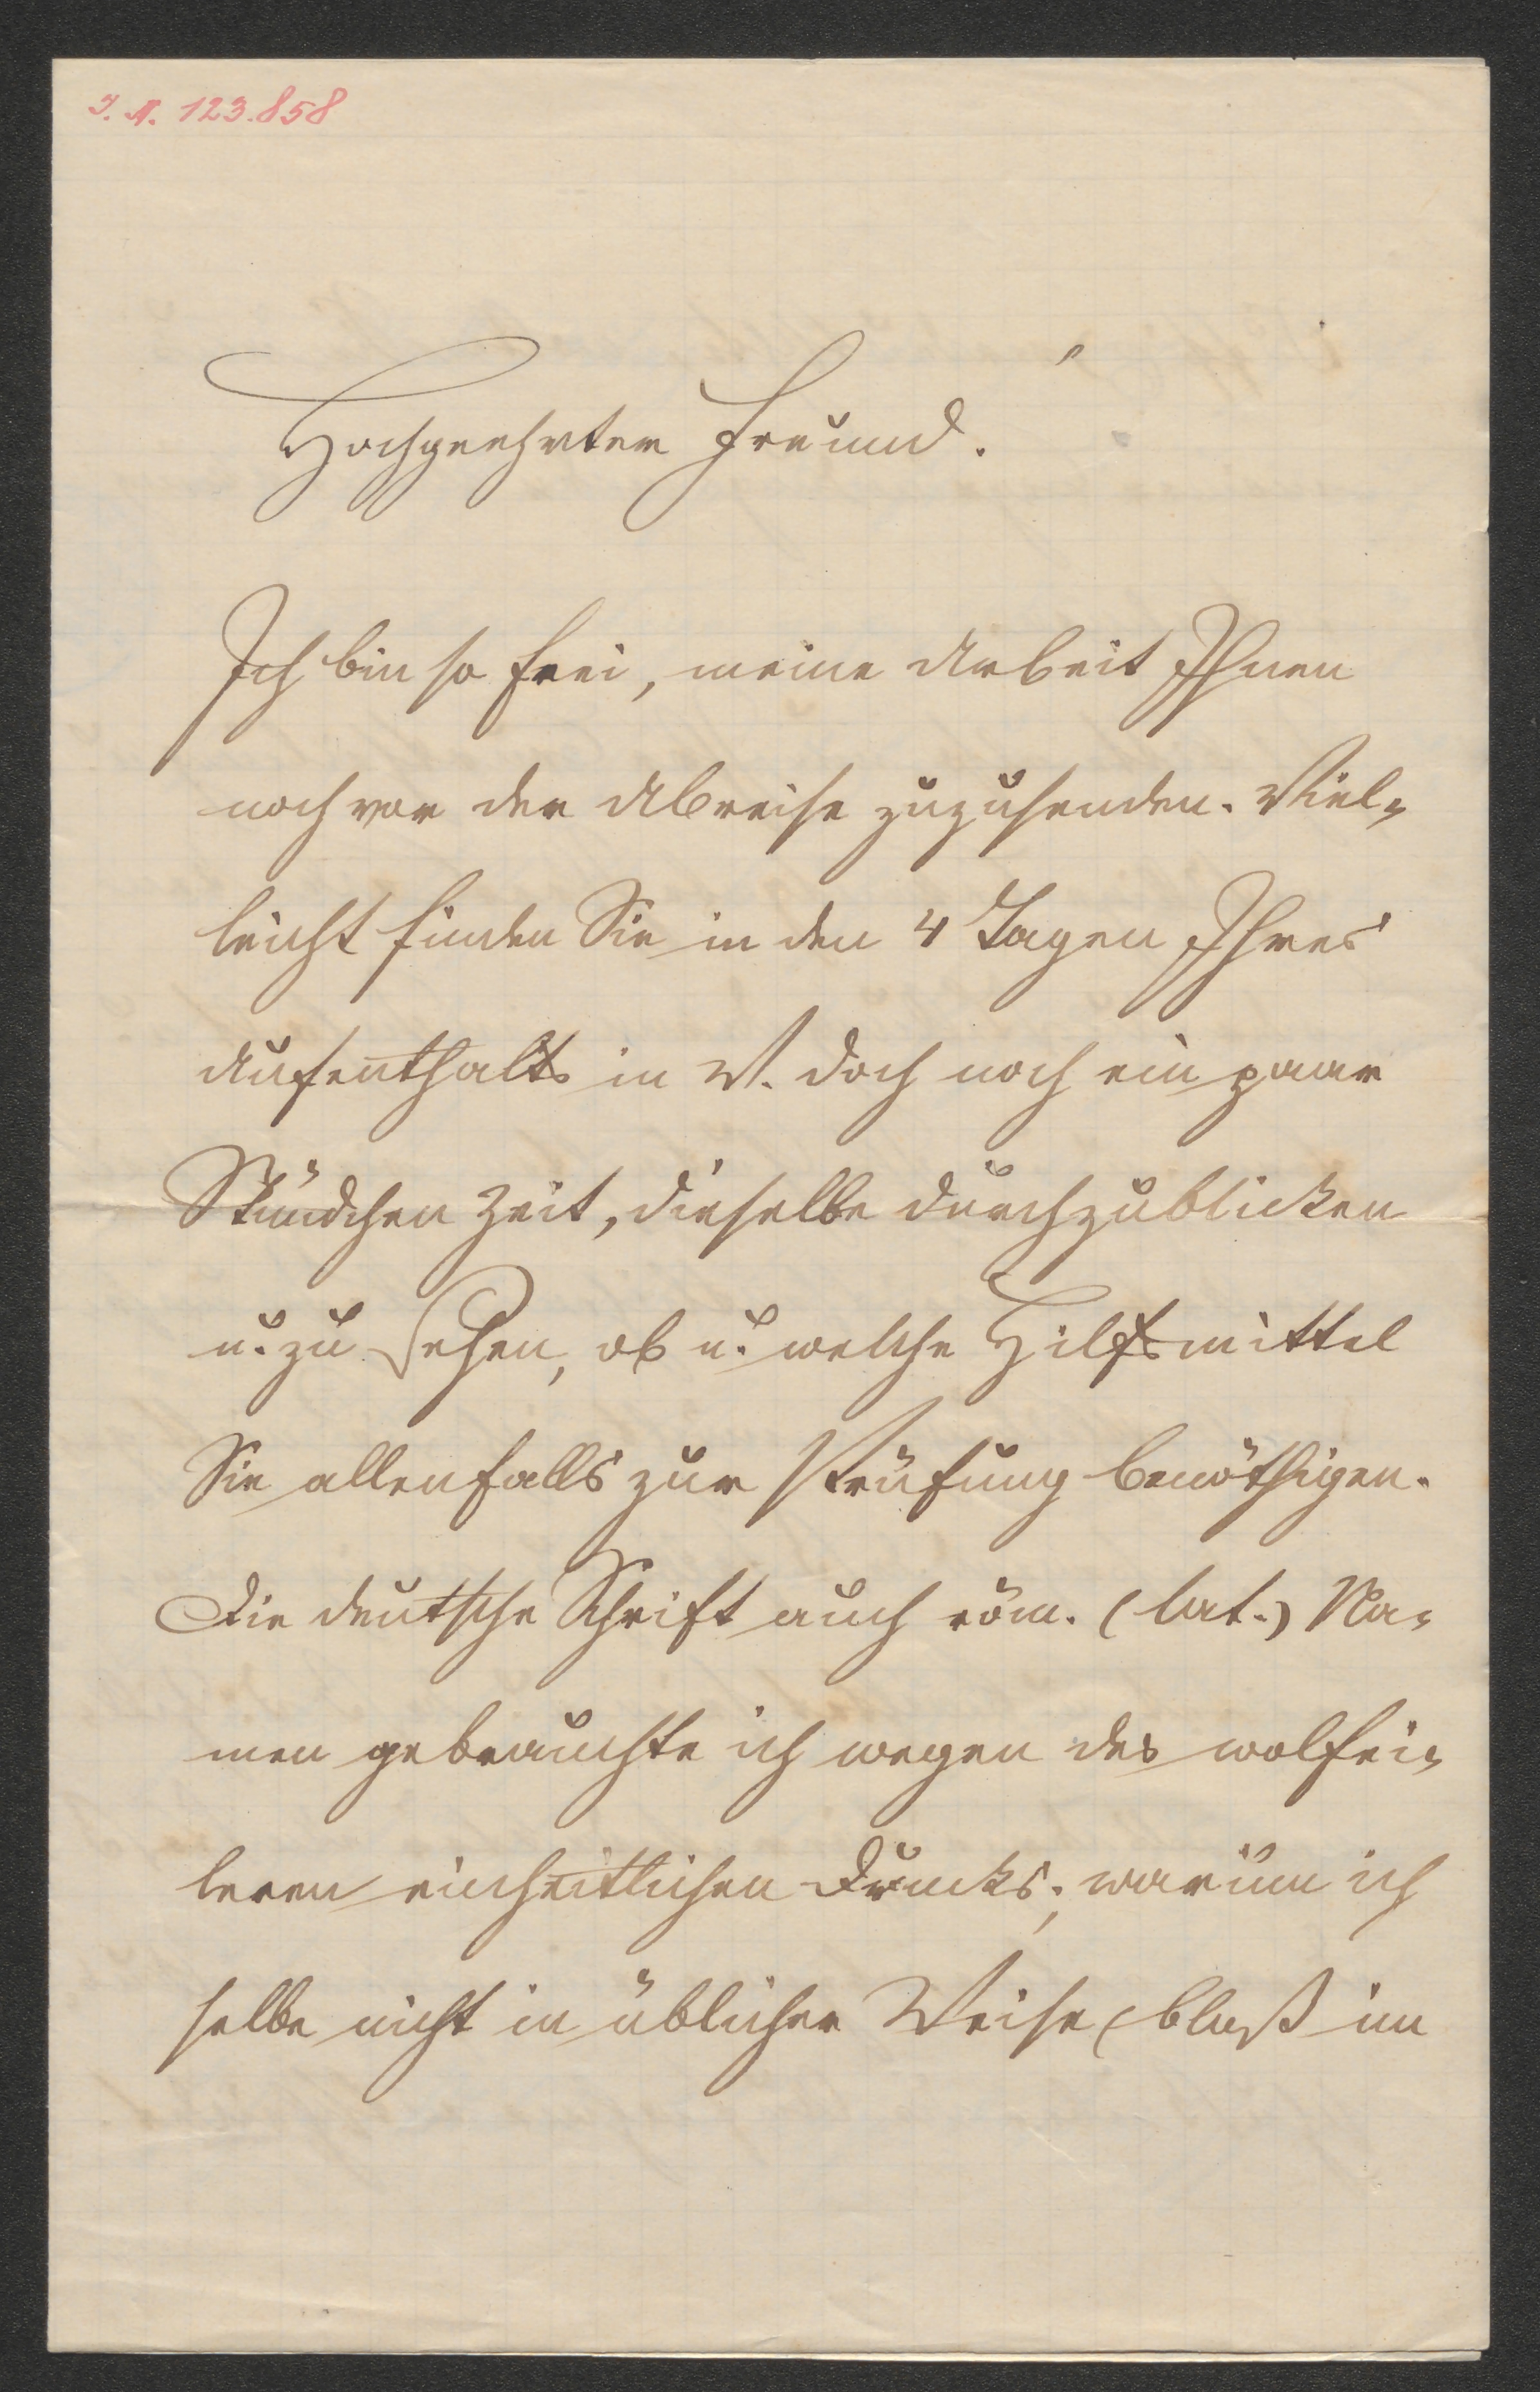 I. N. 123.858
Hochgeehrter Freund.
Ich bin so frei, meine Arbeit Ihnen
noch vor der Abreise zuzusenden. Viel-
leicht finden Sie in den 4 Tagen Ihres
Aufenthalts in W. doch noch ein paar
Stündchen Zeit, dieselbe durchzublicken
u. zu sehen, ob u. welche Hilfsmittel
Sie allenfalls zur Prüfung benöthigen.
Die deutsche Schrift auch röm. (lat.) Na-
men gebrauchte ich wegen des wolfei-
leren einheitlichen Drucks; warum ich
selbe nicht in üblicher Weise (bloß im